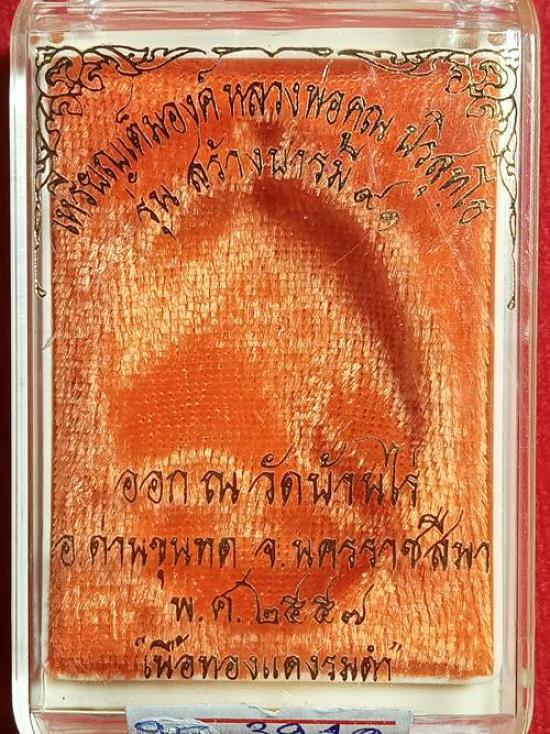 เหรียญเต็มองค์ หลวงพ่อคูณ ปริสุทโธ
รุ่น สร้างบารมี ๙๑
ออก ณ วัดบ้านไร่
อ.ด่านขุนทด จ.นครราชสีมา
พ.ศ.๒๕๕๗
"เนื้อทองแดงรมดำ"